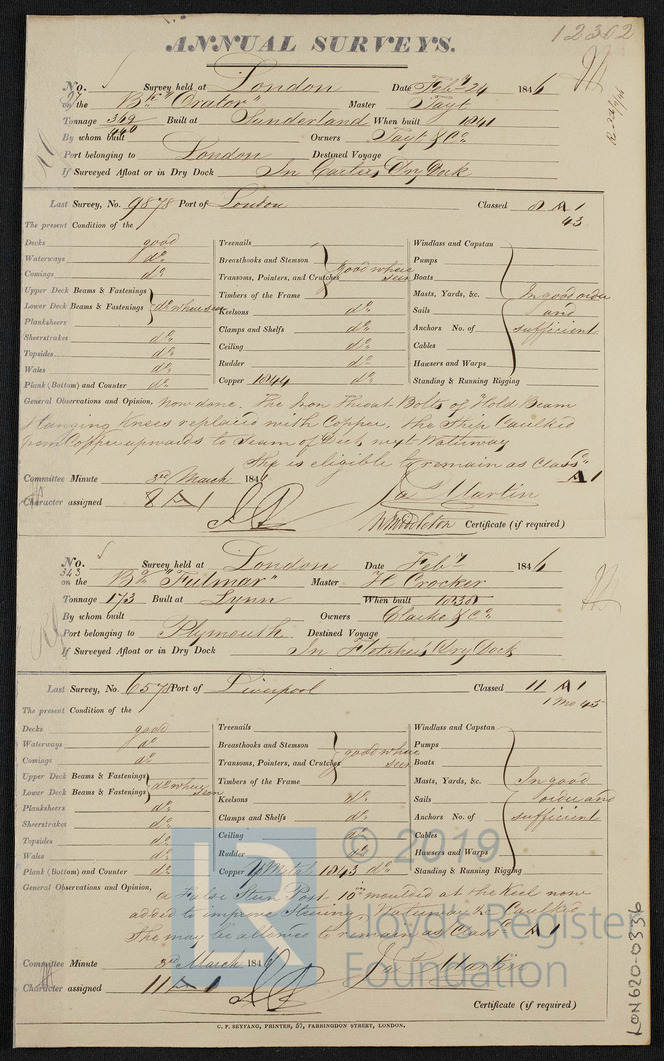 12302
ANNUAL SURVEYS.
No. Survey held at London Date Feby 24 1846
on the Bk "Orator" Master Tayt
Tonnage 369 Built at Sunderland When built 1841
440
By whom built Owners Tayt & Co
Port belonging to London Destined Voyage
If Surveyed Afloat or in Dry Dock In Carters Dry Dock
Last Survey, No. 9878 Port of London Classed 8 A 1
43
The present Condition of the
Decks good Treenails Windlass and Capstan
Waterways do Breasthooks and Stemson Pumps
Comings do Transoms, Pointers, and Crutches good where seen Boats
Upper Deck Beams & Fastenings Timbers of the Frame Masts, Yards, &c. In good order
Lower Deck Beams & Fastenings do where seen Keelsons do Sails and
Planksheers Clamps and Shelfs do Anchors No. of sufficient
Sheerstrakes do Ceiling do Cables
Topsides do Rudder do Hawsers and Warps
Wales do Copper 1844 do Standing & Running Rigging
Plank (Bottom) and Counter do
General Observations and Opinion, Now done. The Iron Throat Bolts of Hold Beam
Hanging Knees replaced with Copper, the Ship Caulked
from Copper upwards to Seam of Deck next Waterway
She is eligible to remain as Classd A 1
Committee Minute 3rd March 1846 Jas Martin
Character assigned 8 A 1 W Middleton Certificate (if required)
No. Survey held at London Date Feby 1846
343
on the Bn "Fulmar" Master H Crocker
Tonnage 173 Built at Lynn When built 1838
By whom built Owners Clarke & Co
Port belonging to Plymouth Destined Voyage
If Surveyed Afloat or in Dry Dock In Fletchers Dry Dock
Last Survey, No. 6578 Port of Liverpool Classed 11 A 1
1 Mo 45
The present Condition of the
Decks good Treenails Windlass and Capstan
Waterways do Breasthooks and Stemson Pumps
Comings do Transoms, Pointers, and Crutches good where seen Boats
Upper Deck Beams & Fastenings Timbers of the Frame Masts, Yards, &c. In good
Lower Deck Beams & Fastenings do where seen Keelsons do Sails order and
Planksheers do Clamps and Shelfs do Anchors No. of sufficient
Sheerstrakes do Ceiling do Cables
Topsides do Rudder do Hawsers and Warps
Wales do Copper Y Metal 1843 do Standing & Running Rigging
Plank (Bottom) and Counter do
General Observations and Opinion, a False Stern Post 10 ins moulded at the Keel now
added to improve Steering, Waterways &c Caulked
She may be allowed to remain as Classd A 1
Committee Minute 3rd March 1846 Jas Martin
Character assigned 11 A 1
Certificate (if required)
C. F. SEYFANG, PRINTER, 57, FARRINGDON STREET, LONDON.
LON620-0336
© 2019
Lloyd's Register
Foundation